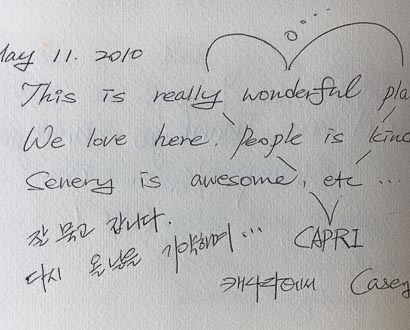 May 11. 2010
This is really wonderful pla
We love here. People is kind
Senery is awesome, etc ...
잘 묵고 갑니다.
CAPRI
다시 올 날을 기약하며 ...
Casey